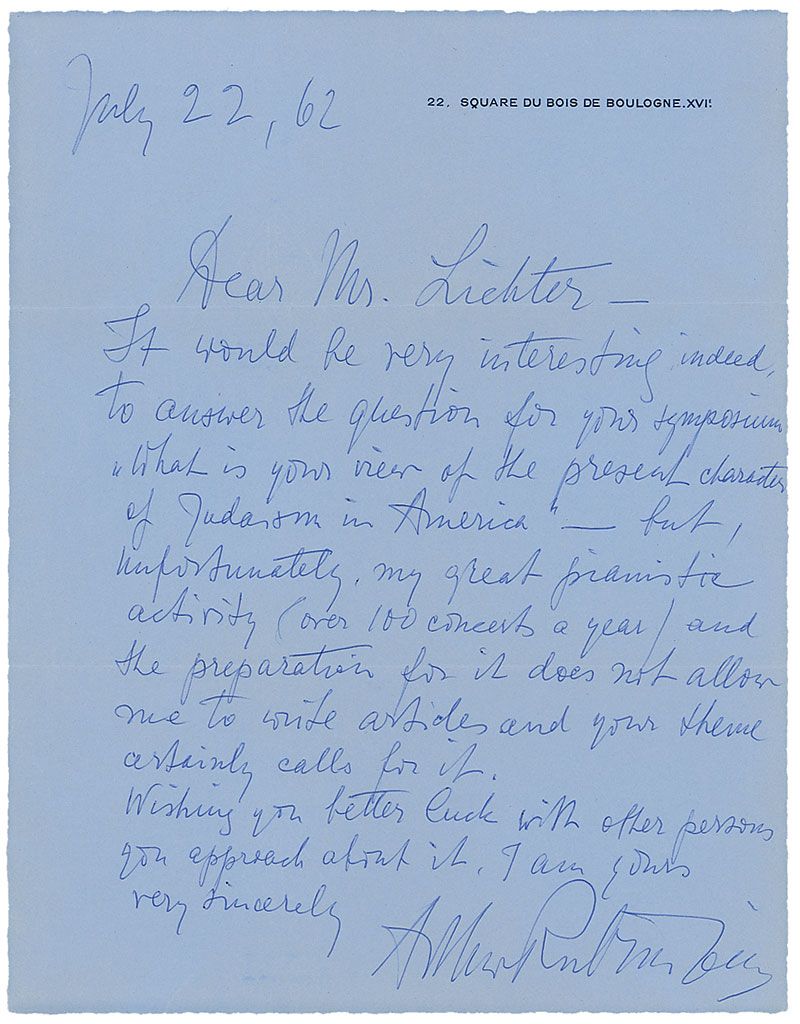 July 22, 62
22, SQUARE DU BOIS DE BOULOGNE.XVIE
Dear Mr. Lichter —
It would be very interesting indeed,
to answer the question for your symposium
„What is your view of the present character
of Judaism in America" — but,
unfortunately, my great pianistic
activity (over 100 concerts a year) and
the preparation for it does not allow
me to write articles and your theme
certainly calls for it.
Wishing you better luck with other persons
you approach about it, I am yours
very sincerely
Arthur Rubinstein